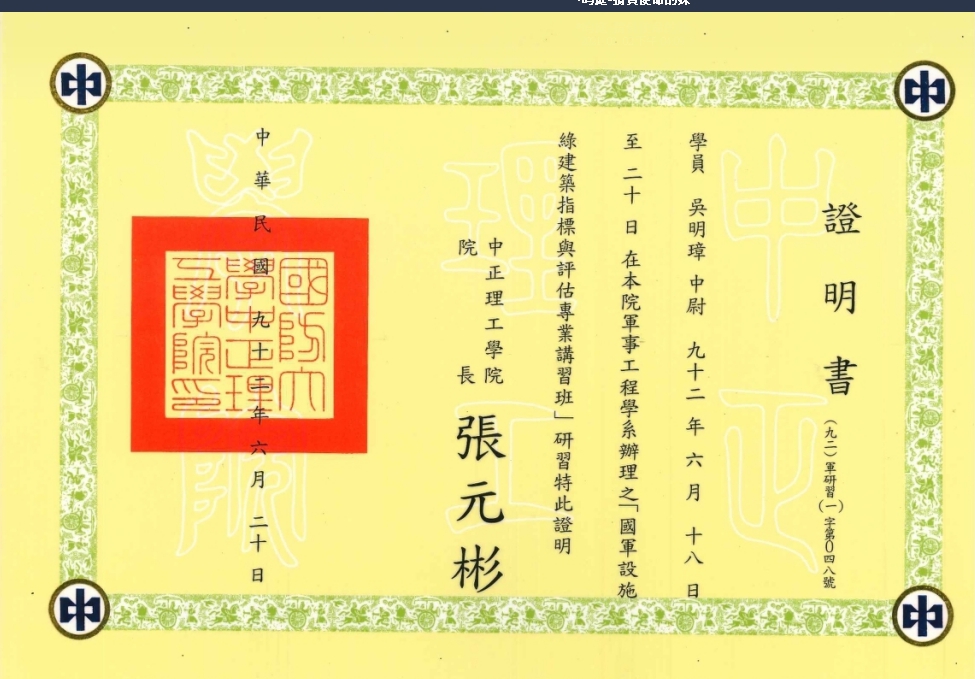 證明書
(九二)軍研習(一)字第0四八號
學員 吳明璋 中尉 九十二 年 六 月 十八 日
至 二十 日 在本院軍事工程學系辦理之「國軍設施
綠建築指標與評估專業講習班」研習特此證明
中正理工學院
院長
張元彬
中華民國九十二年六月二十日
國防大
學中正理
工學院印
中正
理工
學院
中
中
中
中